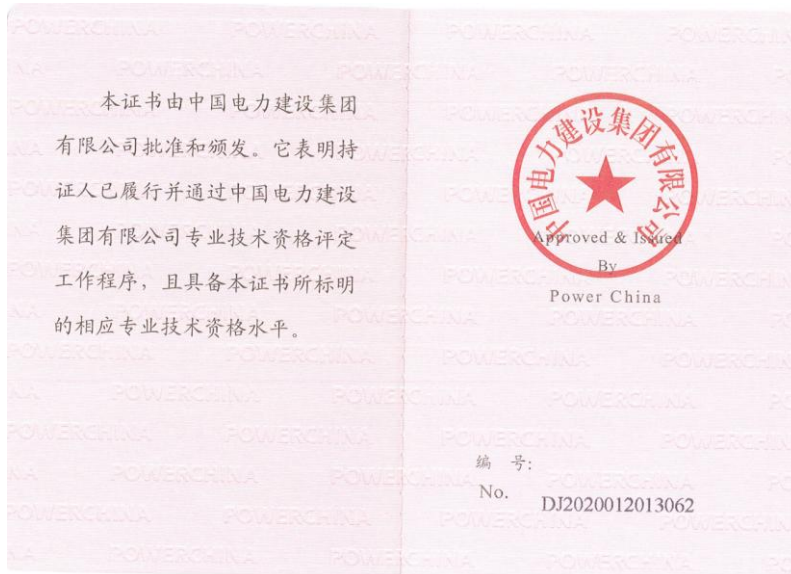 本证书由中国电力建设集团
有限公司批准和颁发。它表明持
证人已履行并通过中国电力建设
集团有限公司专业技术资格评定
工作程序，且具备本证书所标明
的相应专业技术资格水平。
中国电力建设集团有限公司
Approved & Issued
By
Power China
编 号:
No. DJ2020012013062
POWERCHINA